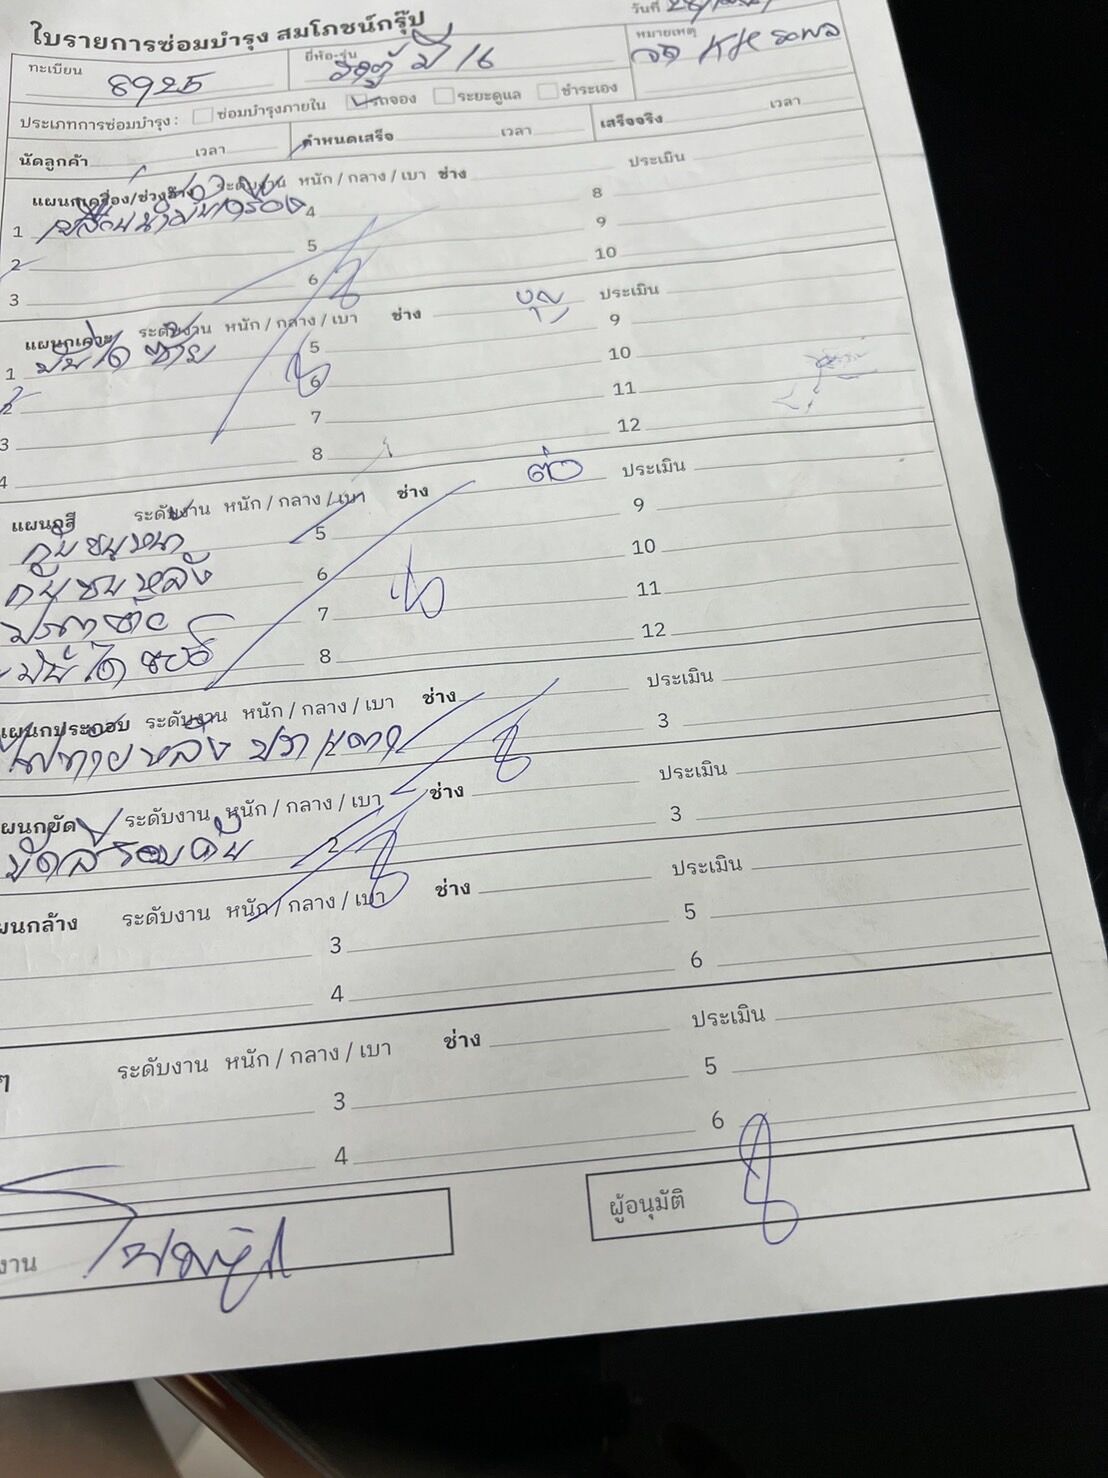 ใบรายการซ่อมบำรุง สมโภชน์กรุ๊ป
วันที่
ทะเบียน 8925 ยี่ห้อ-รุ่น รถตู้ ปี 16 หมายเหตุ
ประเภทการซ่อมบำรุง : ซ่อมบำรุงภายใน รถจอง ระยะดูแล ชำระเอง
นัดลูกค้า เวลา กำหนดเสร็จ เวลา เสร็จจริง เวลา
แผนกเครื่อง/ช่วงล่าง ระดับงาน หนัก / กลาง / เบา ช่าง ประเมิน
1 เปลี่ยนน้ำมันเครื่อง 4 8
2 5 9
3 6 10
แผนกเคาะ ระดับงาน หนัก / กลาง / เบา ช่าง บุญ ประเมิน
1 บันได ซ้าย 5 9
2 6 10
3 7 11
4 8 12
แผนกสี ระดับงาน หนัก / กลาง / เบา ช่าง ต่อ ประเมิน
กันชนหน้า 5 9
กันชนหลัง 6 10
7 11
บันได 8 12
แผนกประกอบ ระดับงาน หนัก / กลาง / เบา ช่าง ประเมิน
ไฟท้ายหลัง 3
แผนกขัด ระดับงาน หนัก / กลาง / เบา ช่าง ประเมิน
ขัดสีรอบคัน 2 3
แผนกล้าง ระดับงาน หนัก / กลาง / เบา ช่าง ประเมิน
3 5
4 6
ๆ ระดับงาน หนัก / กลาง / เบา ช่าง ประเมิน
3 5
4 6
งาน ผู้อนุมัติ